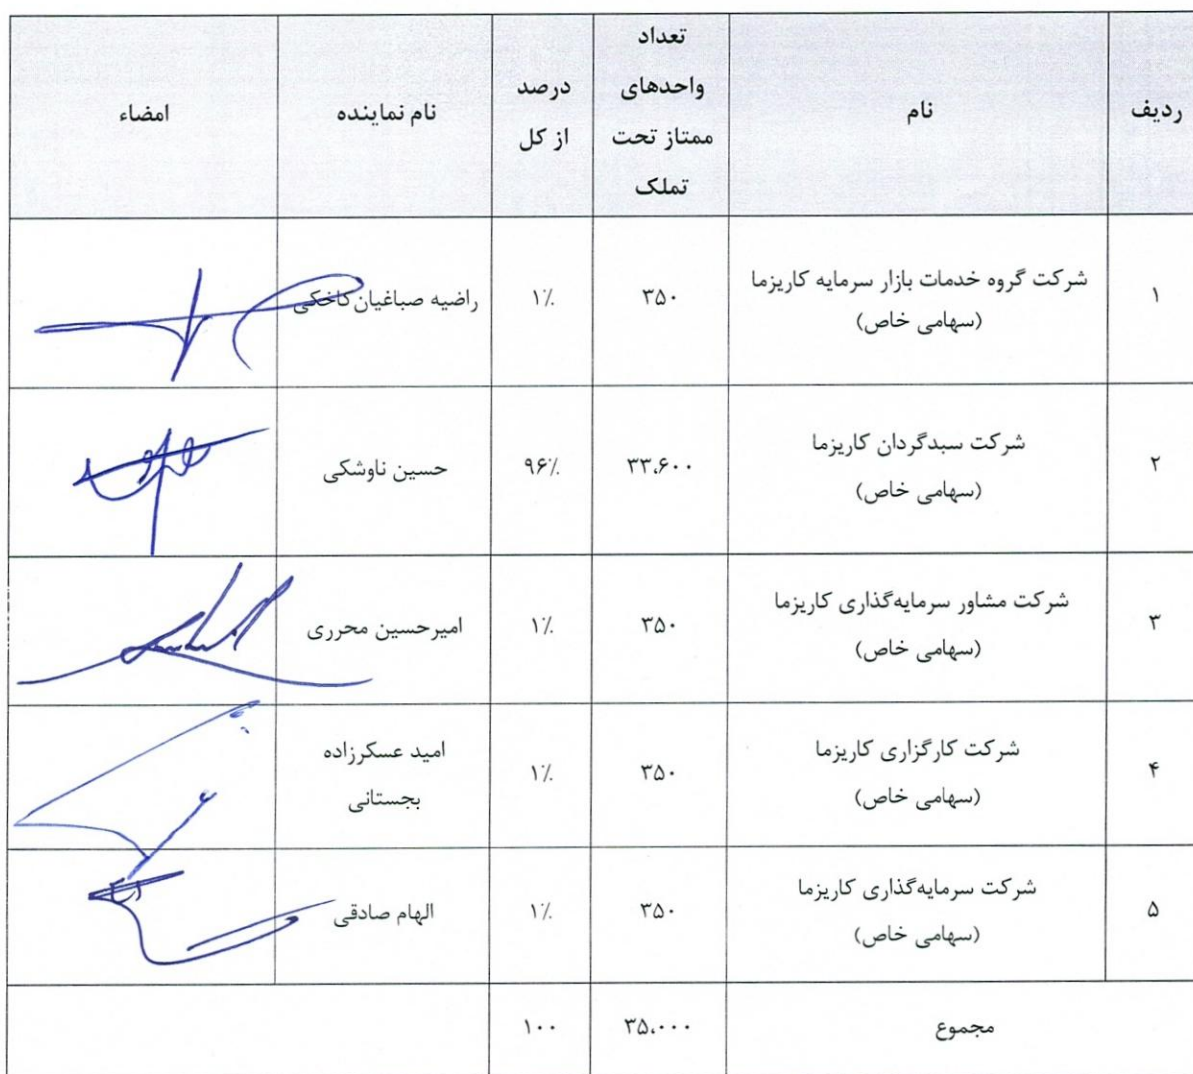 ردیف
نام
تعداد
واحدهای
ممتاز تحت
تملک
درصد
از کل
نام نماینده
امضاء
۱
شرکت گروه خدمات بازار سرمایه کاریزما
(سهامی خاص)
۳۵۰
۱٪
راضیه صباغیان‌کاخکی
۲
شرکت سبدگردان کاریزما
(سهامی خاص)
۳۳،۶۰۰
۹۶٪
حسین ناوشکی
۳
شرکت مشاور سرمایه‌گذاری کاریزما
(سهامی خاص)
۳۵۰
۱٪
امیرحسین محرری
۴
شرکت کارگزاری کاریزما
(سهامی خاص)
۳۵۰
۱٪
امید عسکرزاده
بجستانی
۵
شرکت سرمایه‌گذاری کاریزما
(سهامی خاص)
۳۵۰
۱٪
الهام صادقی
مجموع
۳۵،۰۰۰
۱۰۰